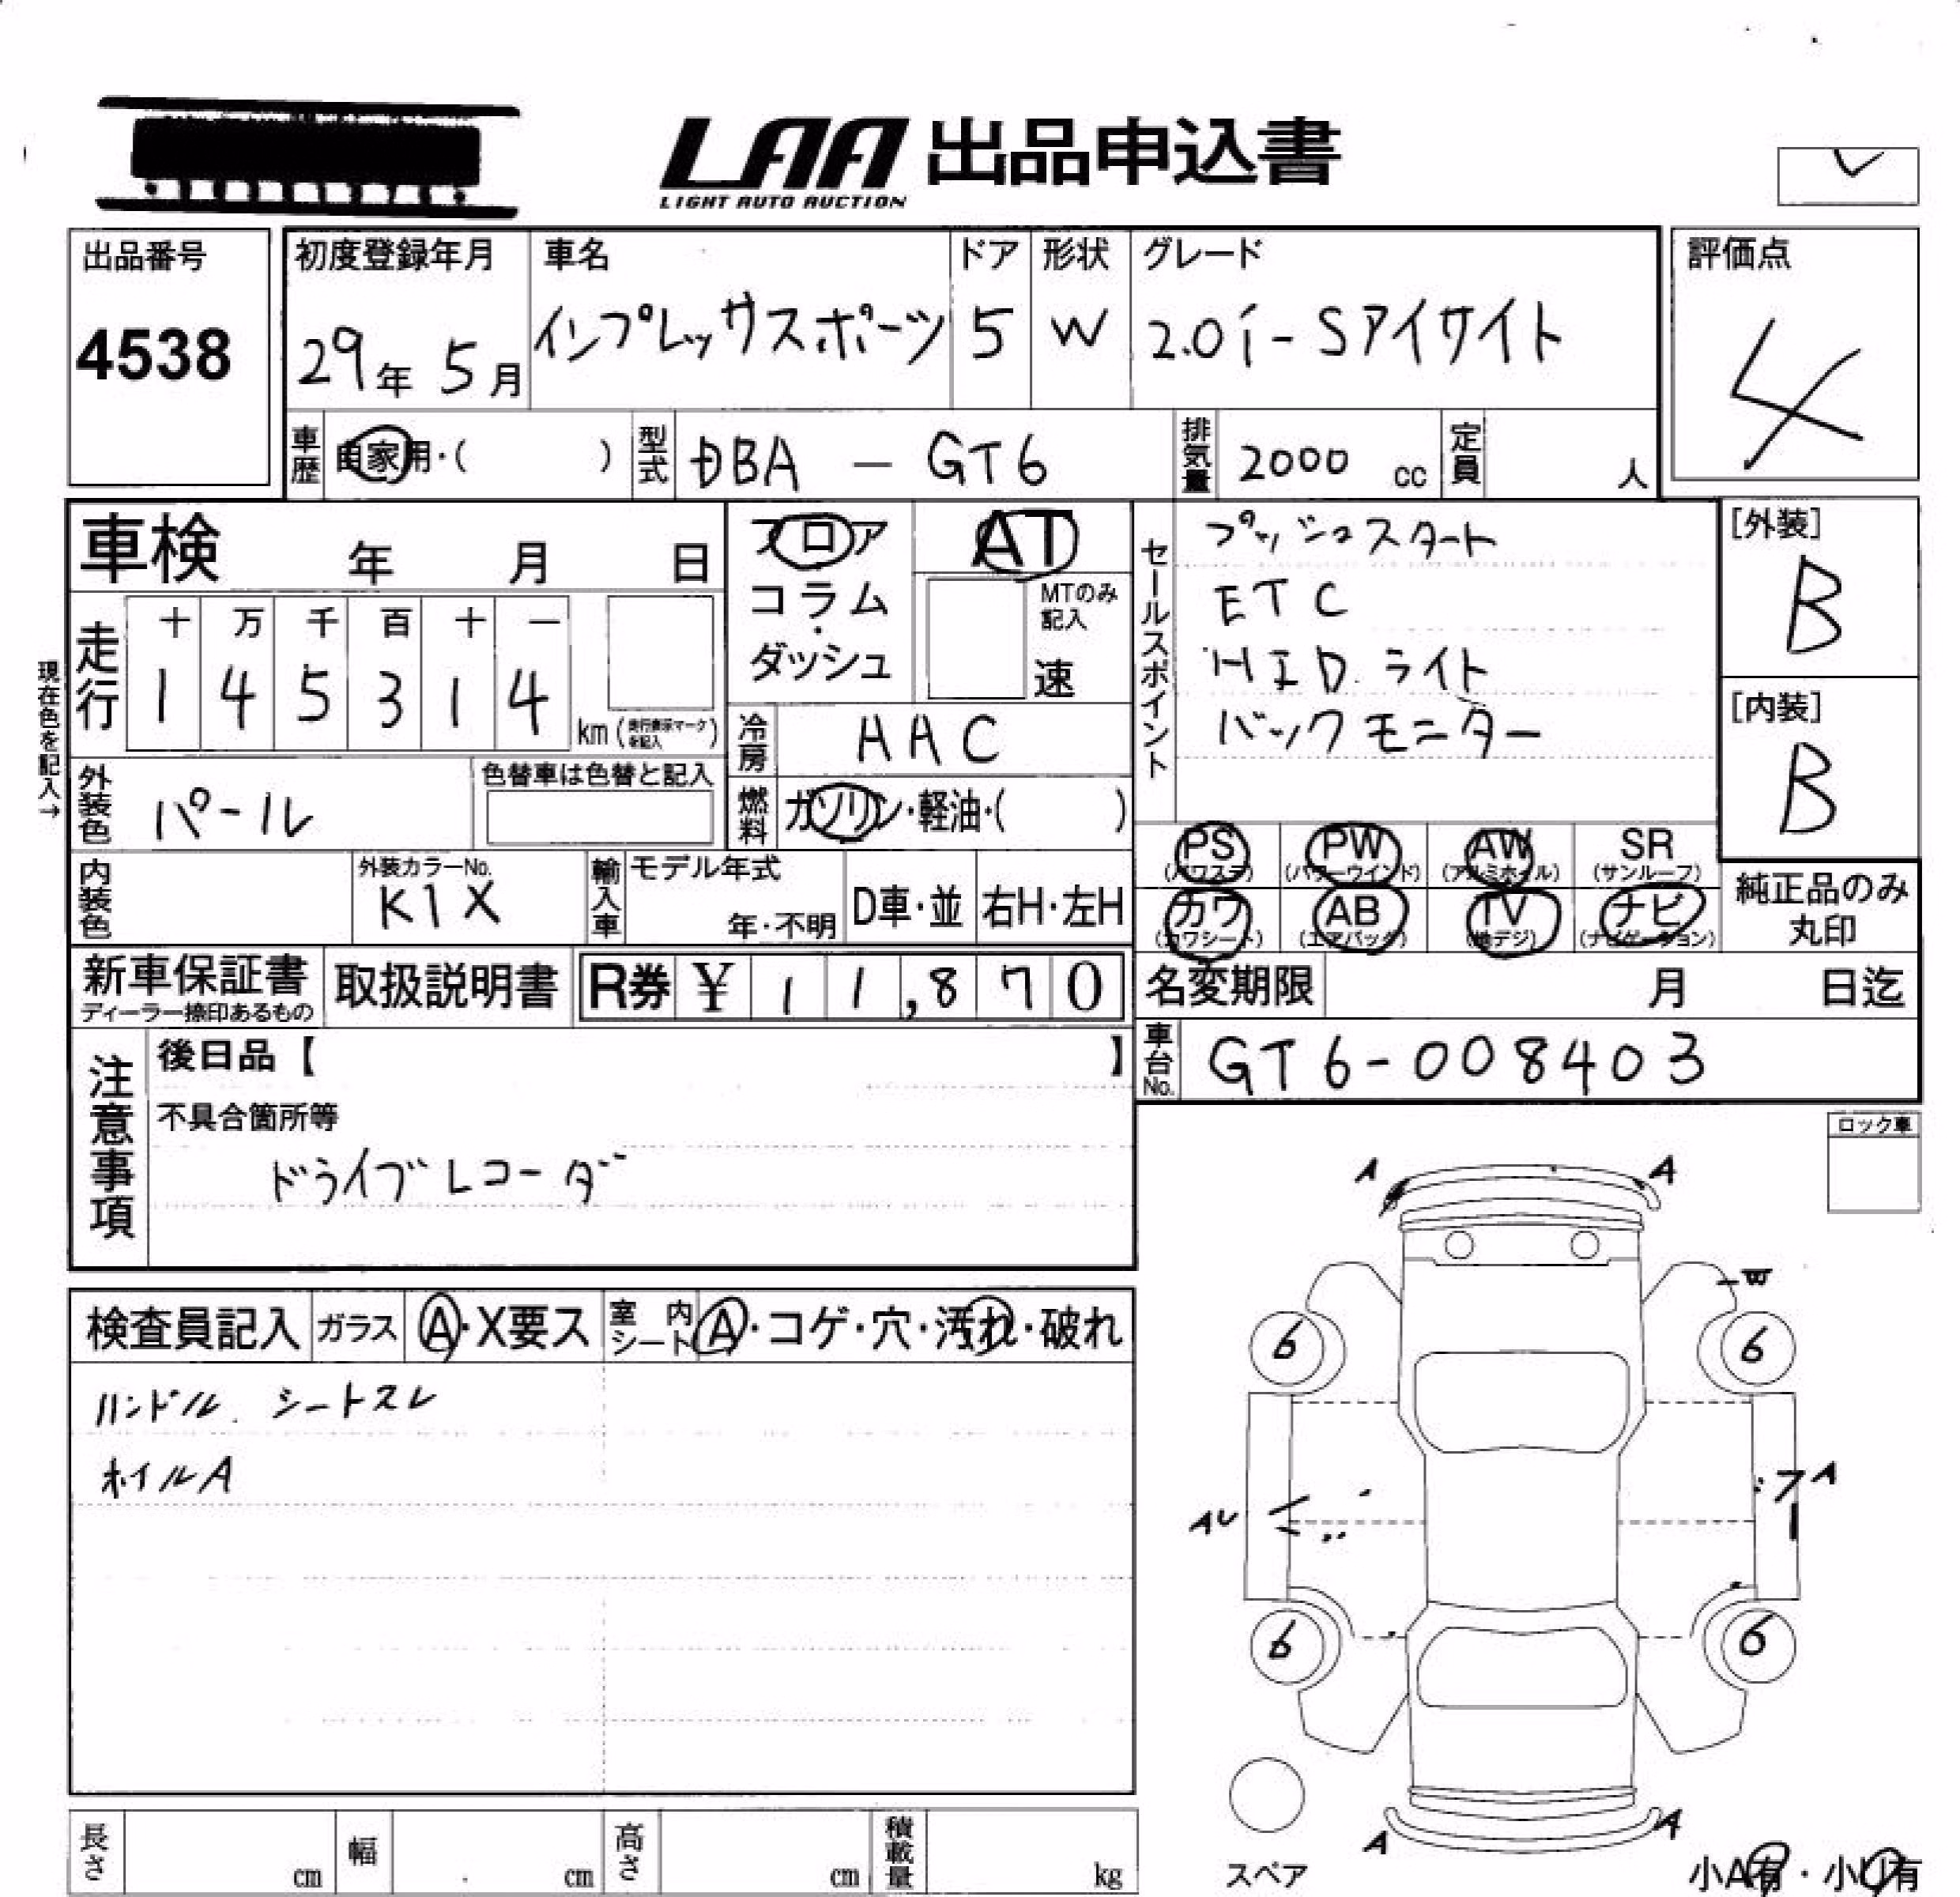 LAA 出品申込書
LIGHT AUTO AUCTION
出品番号
4538
初度登録年月
29年 5月
車名
インプレッサスポーツ
ドア
5
形状
W
グレード
2.0i-Sアイサイト
評価点
4
車歴 自家用・( )
型式 DBA — GT6
排気量 2000 cc
定員 人
車検 年 月 日
フロア
コラム・
ダッシュ
AT
MTのみ
記入
速
セールスポイント
プッシュスタート
ETC
HIDライト
バックモニター
[外装]
B
[内装]
B
現在色を記入→
走行
十 万 千 百 十 一
1 4 5 3 1 4
km(走行表示マークを記入)
冷房 AAC
外装色 パール
色替車は色替と記入
燃料 ガソリン・軽油・( )
PS PW AW SR
(パワステ) (パワーウインド) (アルミホイル) (サンルーフ)
カワ AB TV ナビ
(カワシート) (エアバック) (地デジ) (ナビゲーション)
純正品のみ
丸印
内装色
外装カラーNo.
K1X
輸入車
モデル年式
年・不明
D車・並
右H・左H
新車保証書
ディーラー捺印あるもの
取扱説明書
R券 ¥ 1 1,8 7 0
名変期限 月 日迄
車台No. GT6-008403
注意事項
後日品【 】
不具合箇所等
ドライブレコーダ
ロック車
検査員記入
ガラス A・X要ス
室内シート A・コゲ・穴・汚れ・破れ
ハンドル、シートスレ
ホイルA
A A
W
6 6
A
AU
6 6
A A
スペア
小A有・小U有
長さ cm
幅 cm
高さ cm
積載量 kg